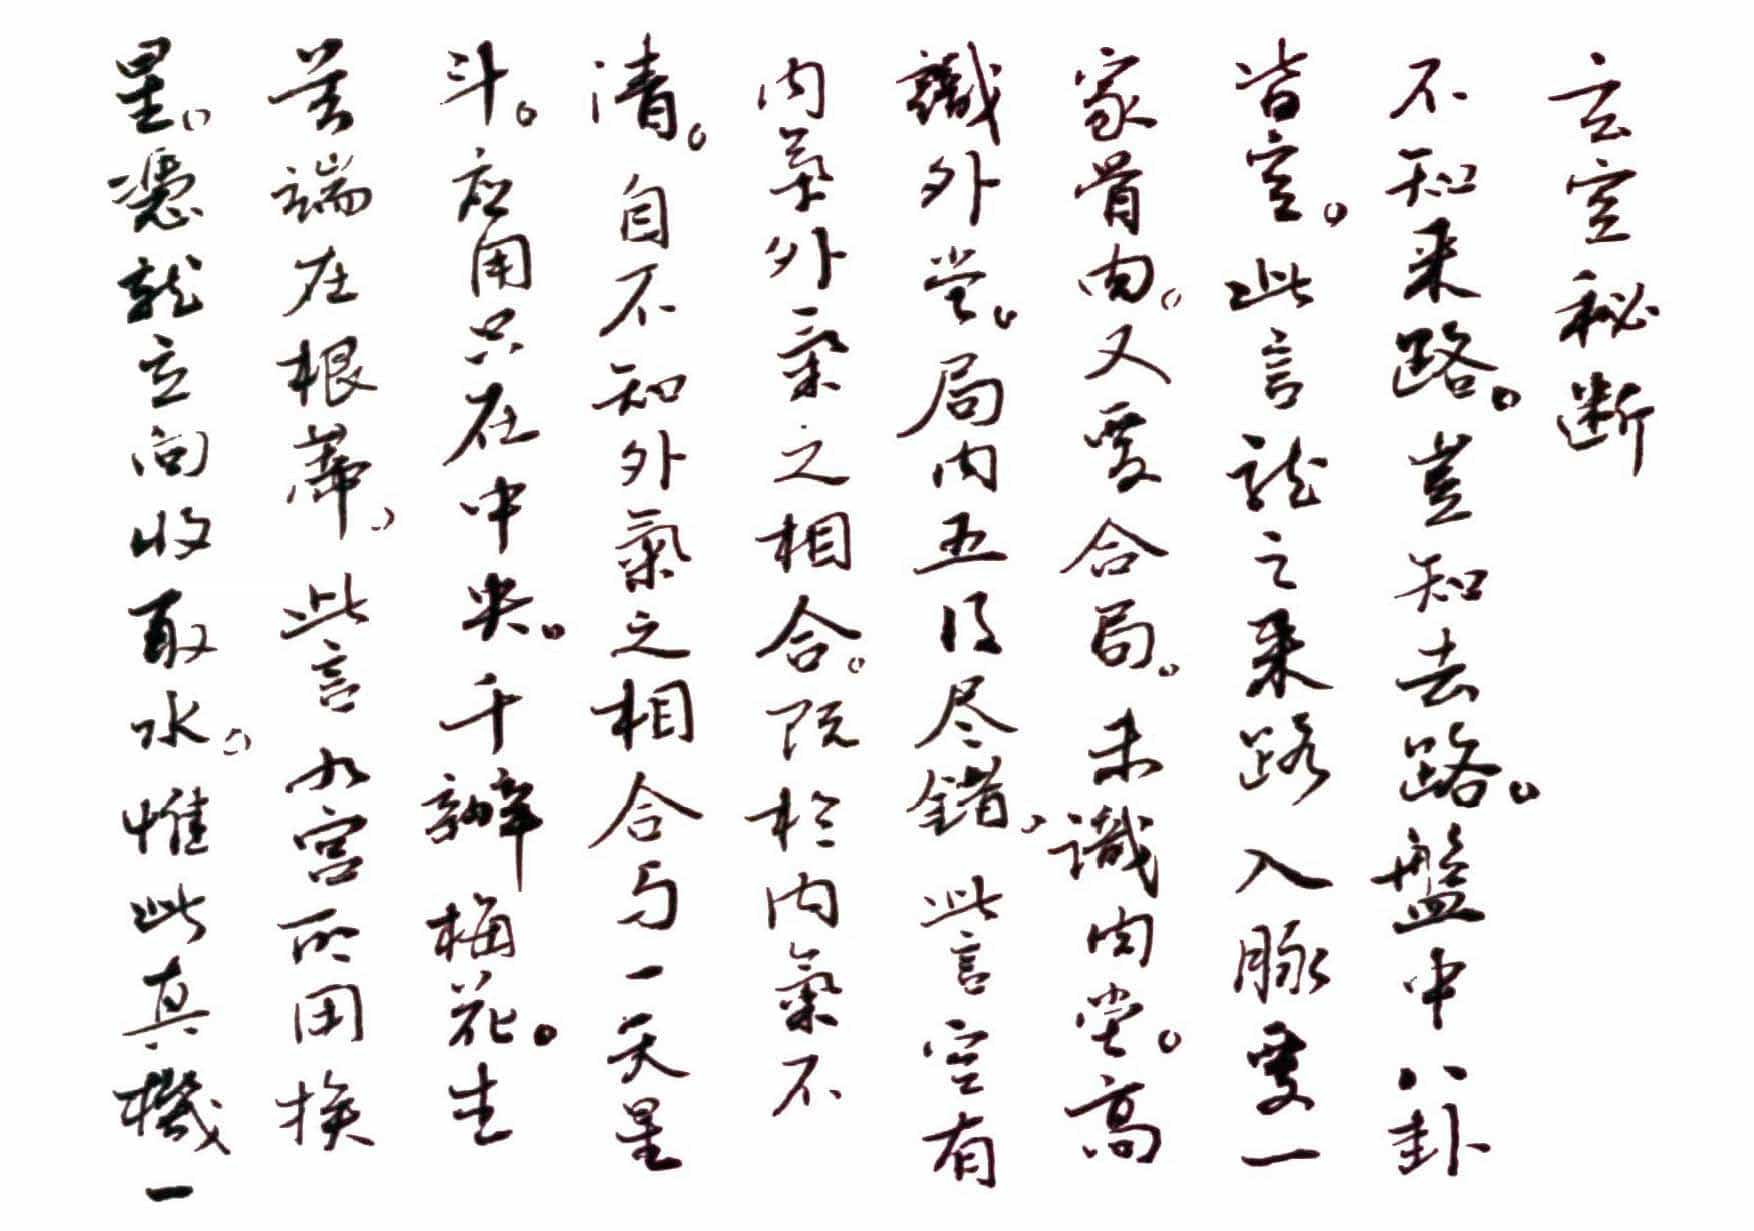 玄空秘断
不知来路。豈知去路。盤中八卦
皆空。此言龍之来路入脉要一
家骨肉。又要合局。未識内堂。高
識外堂。局内五行尽錯，此言空有
内氣外氣之相合。既於内氣不
清。自不知外氣之相合与一天星
斗。应用只在中央。千辦梅花。生
芸端在根蒂，此言九宫所用挨
星。憑龍立向收取水。惟此真機一